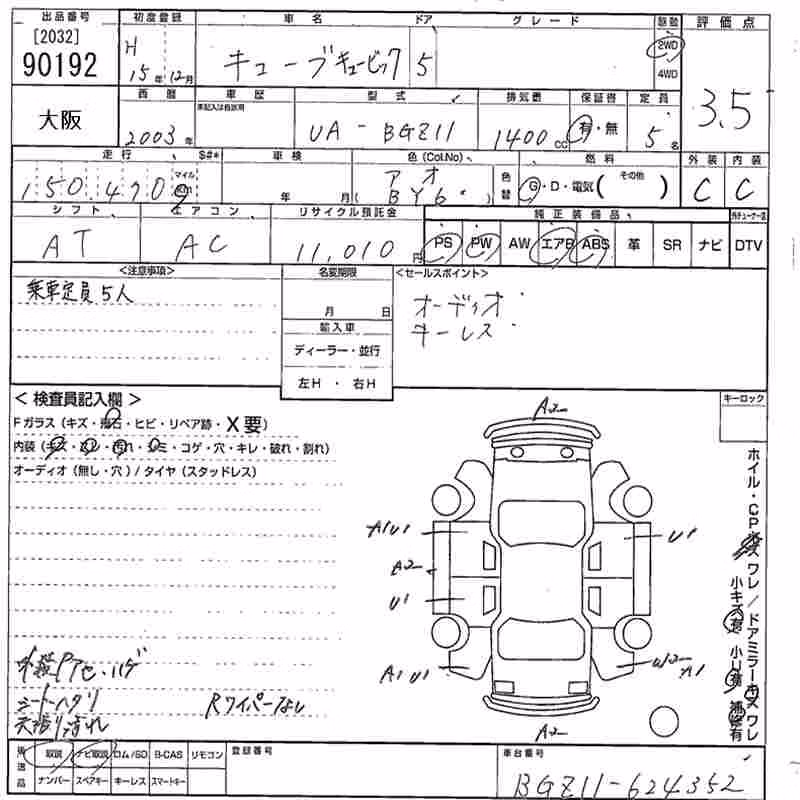 出品番号 初度登録 車名 ドア グレード 駆動 評価点
[2032]
90192
H 15年 12月 キューブキュービック 5 2WD 4WD 3.5
大阪
西暦 車歴 型式 排気量 保証書 定員
未記入は自家用
2003年 UA-BGZ11 1400cc 有・無 5名
走行 S#* 車検 色(Col.No) 色替 燃料 外装 内装
150,470 マイル km 年 月 アオ (BY6) G・D・電気( その他 ) C C
シフト エアコン リサイクル預託金 純正装備品
AT AC 11,010円 PS PW AW エアB ABS 革 SR ナビ DTV
<注意事項> 名変期限 <セールスポイント>
乗車定員5人
月 日
オーディオ
キーレス
輸入車
ディーラー・並行
左H ・ 右H
< 検査員記入欄 > キーロック
Fガラス (キズ・飛石・ヒビ・リペア跡・X要)
内装 (キズ・コゲ・穴・キレ・破れ・割れ)
オーディオ (無し・穴) / タイヤ (スタッドレス)
A2
A1U1 U1
A2
U1
A1 U1 W2 A1
A2
ホイル・CP ワレ / ドアミラーキズ ワレ
小キズ有 小U有 補修有
シートヘタリ
天張り汚れ
Rワイパーなし
後送品 取説 ナビ取説 ロム/SD B-CAS リモコン 登録番号 車台番号
ナンバー スペアキー キーレス スマートキー
BGZ11-624352